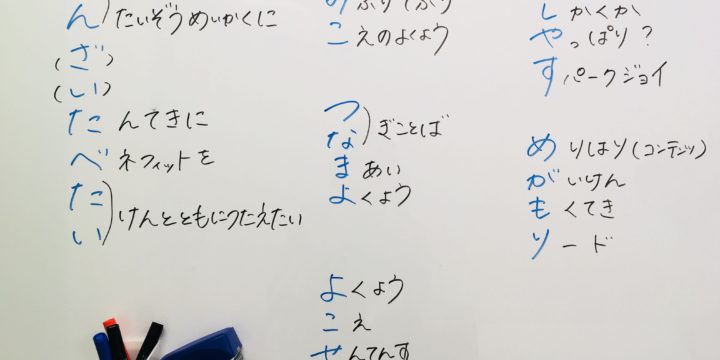 ん)たいぞうめいかくに
(ざ)
(い)
たんてきに
ベネフィットを
た
い)けんとともにつたえたい
こえのよくよう
つ
な)ぎことば
まあい
よくよう
よくよう
こえ
せんてんす
しかくか
やっぱり?
すパークジョイ
めりはり(コンテンツ)
がいけん
もくてき
ソード